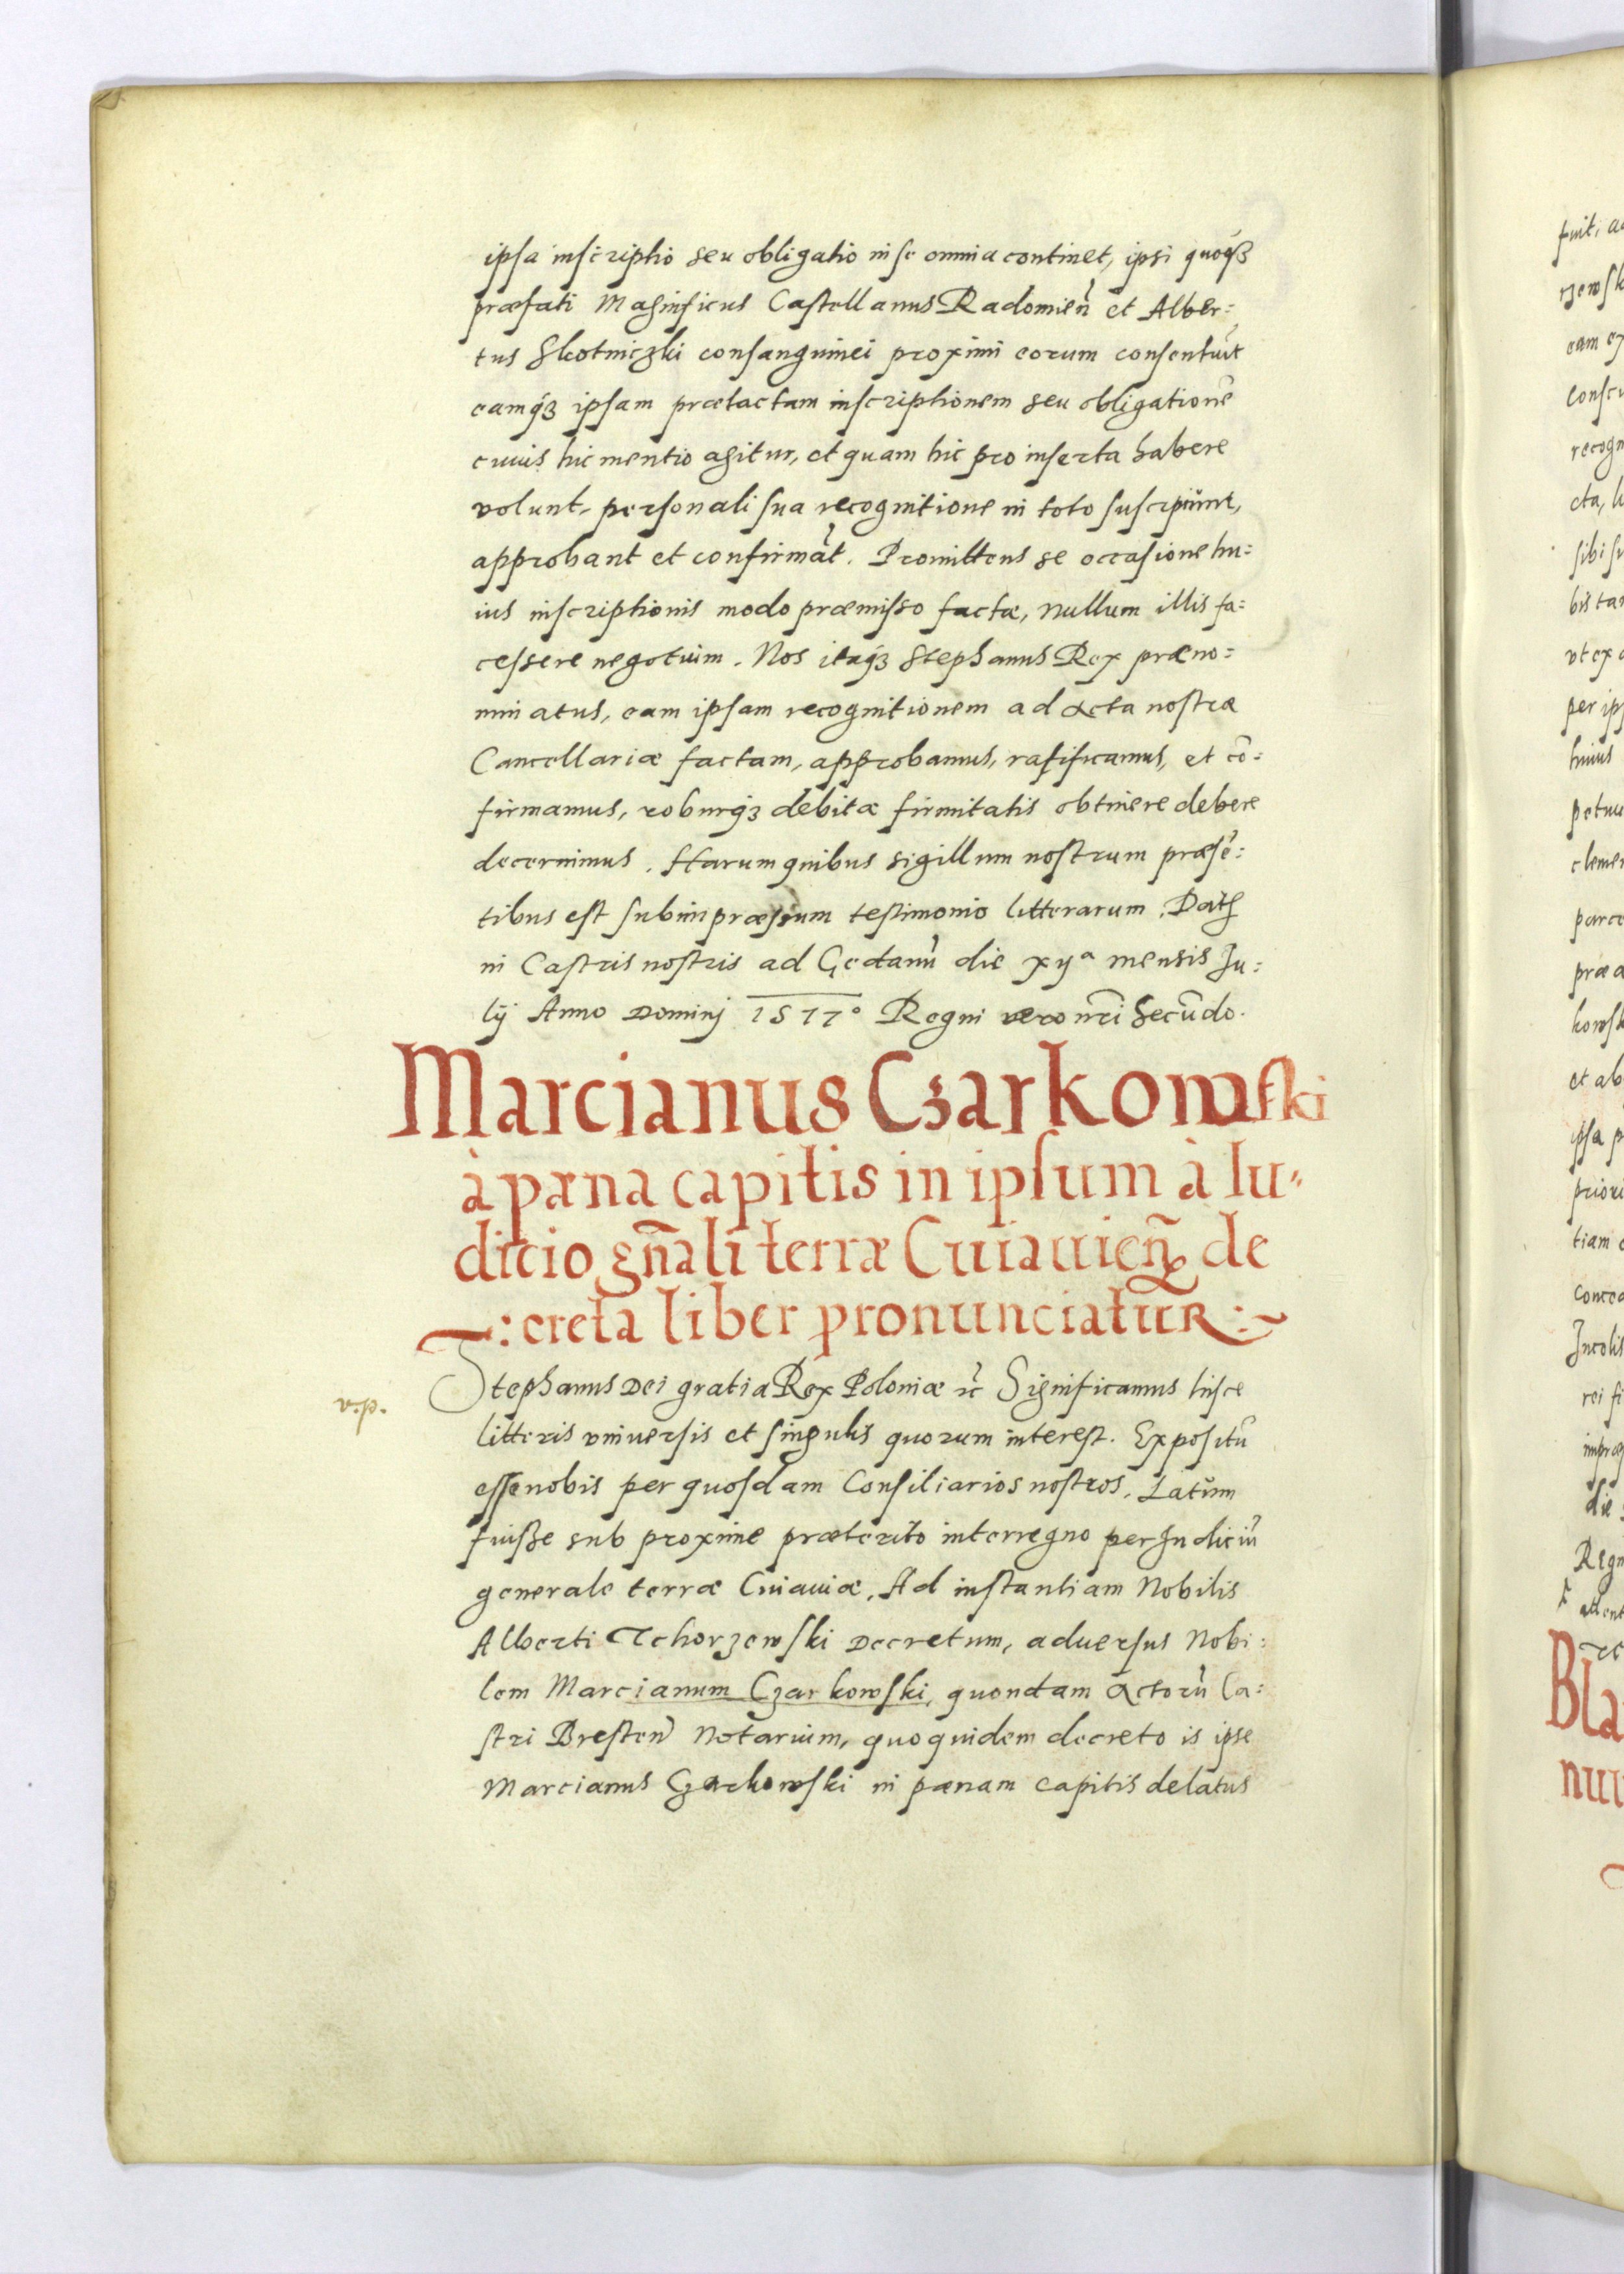 ipsa inscriptio seu obligatio in se omnia continet, ipsi quoqȝ
præfati Magnificus Castellanus Radomień et Alber:
tus Skotniczki consanguinei proximi eorum consentiūt
eamqȝ ipsam prætactam inscriptionem seu obligationē
cuius hic mentio agitur, et quam hic pro inserta habere
volunt, personali sua recognitione in toto suscipiunt,
approbant et confirmāt. Promittens se occasione hu:
ius inscriptionis modo præmisso factæ, nullum illis fa:
cessere negotium. Nos itaqȝ Stephanus Rex præno:
minatus, eam ipsam recognitionem ad acta nostræ
Cancellariæ factam, approbamus, ratificamus, et cō:
firmamus, roburqȝ debitæ firmitatis obtinere debere
decernimus. Harum quibus sigillum nostrum præsē:
tibus est subimpræssum testimonio litterarum. Dat
in Castris nostris ad Gedanū die xyª mensis Ju:
lÿ Anno Dominj 1577° Regni vero nr̄i Secūdo.
Marcianus Czarkowski
à pæna capitis in ipsum à Iu⸗
dicio gn̄ali terræ Cuiauień de
~: creta liber pronunciatur :~
v.p.
Stephanus Dei gratia Rex Poloniæ ꝛc Significamus hisce
litteris vniuersis et singulis quorum interest. Expositū
esse nobis per quosdam Consiliarios nostros, Latum
fuisse sub proxime præterito interregno per Judiciū
generale terræ Cuiauiæ, Ad instantiam Nobilis
Alberti Tchorzewski Decretum, aduersus Nobi:
lem Marcianum Czarkowski, quondam Actorū Ca:
stri Bresteń Notarium, quo quidem decreto is ipse
Marcianus Czarkowski in pænam capitis delatus